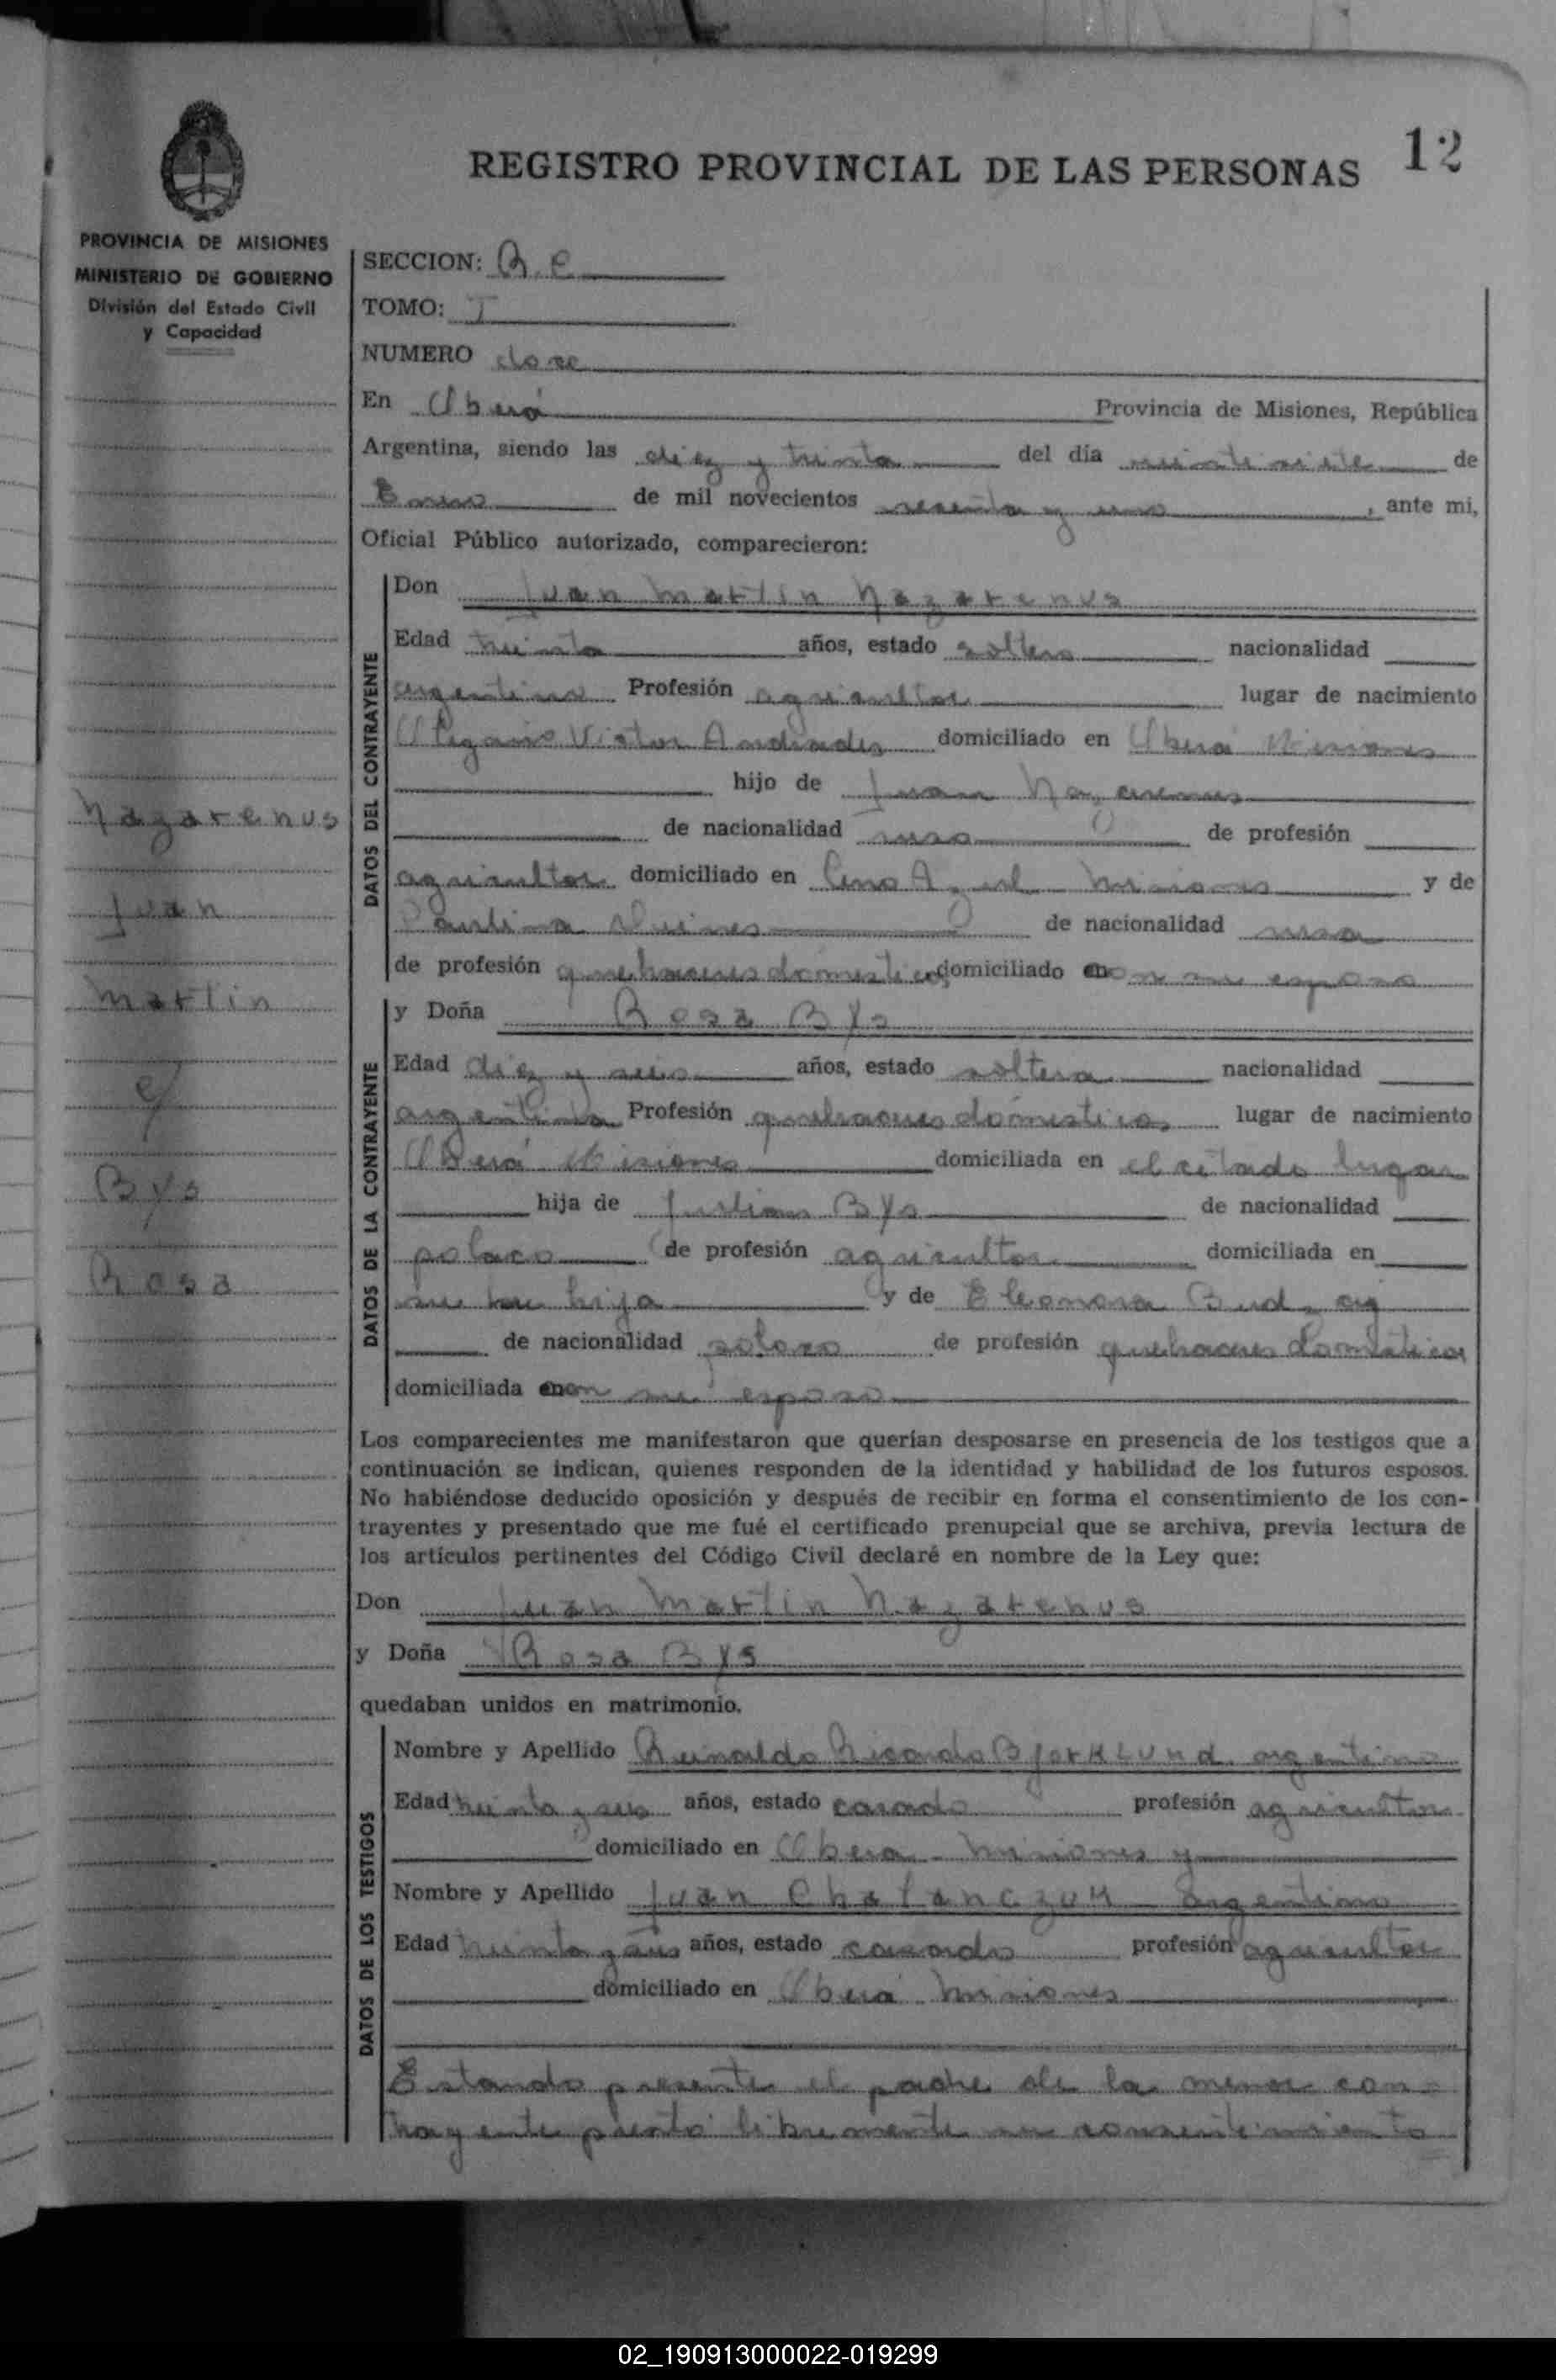 REGISTRO PROVINCIAL DE LAS PERSONAS 12
PROVINCIA DE MISIONES
MINISTERIO DE GOBIERNO
División del Estado Civil
y Capacidad
SECCION: R. C
TOMO: I
NUMERO doce
En Oberá Provincia de Misiones, República
Argentina, siendo las diez y treinta del día veintisiete de
Enero de mil novecientos sesenta y uno, ante mi,
Oficial Público autorizado, comparecieron:
DATOS DEL CONTRAYENTE
Don Juan Martin Nazarenus
Edad treinta años, estado soltero nacionalidad
argentino Profesión agricultor lugar de nacimiento
Victor Andrades domiciliado en Oberá Misiones
hijo de Juan Nazarenus
de nacionalidad ruso de profesión
agricultor domiciliado en Cerro Azul Misiones y de
Paulina de nacionalidad rusa
de profesión quehaceres domesticos domiciliado con su esposo
DATOS DE LA CONTRAYENTE
y Doña Rosa Bys
Edad diez y seis años, estado soltera nacionalidad
argentina Profesión quehaceres domesticos lugar de nacimiento
Oberá Misiones domiciliada en el citado lugar
hija de Julian Bys de nacionalidad
polaco de profesión agricultor domiciliada en
su hija y de Eleonora
de nacionalidad polaca de profesión quehaceres domésticos
domiciliada con su esposo
Los comparecientes me manifestaron que querían desposarse en presencia de los testigos que a
continuación se indican, quienes responden de la identidad y habilidad de los futuros esposos.
No habiéndose deducido oposición y después de recibir en forma el consentimiento de los con-
trayentes y presentado que me fué el certificado prenupcial que se archiva, previa lectura de
los artículos pertinentes del Código Civil declaré en nombre de la Ley que:
Don Juan Martin Nazarenus
y Doña Rosa Bys
quedaban unidos en matrimonio.
DATOS DE LOS TESTIGOS
Nombre y Apellido Reinaldo Ricardo Bjorklund argentino
Edad treinta y seis años, estado casado profesión agricultor
domiciliado en Oberá Misiones y
Nombre y Apellido Juan Chalanczuk argentino
Edad treinta y seis años, estado casado profesión agricultor
domiciliado en Oberá Misiones
Estando presente el padre de la menor con-
trayente prestó libremente su consentimiento
Nazarenus
Juan
Martin
y
Bys
Rosa
02_190913000022-019299